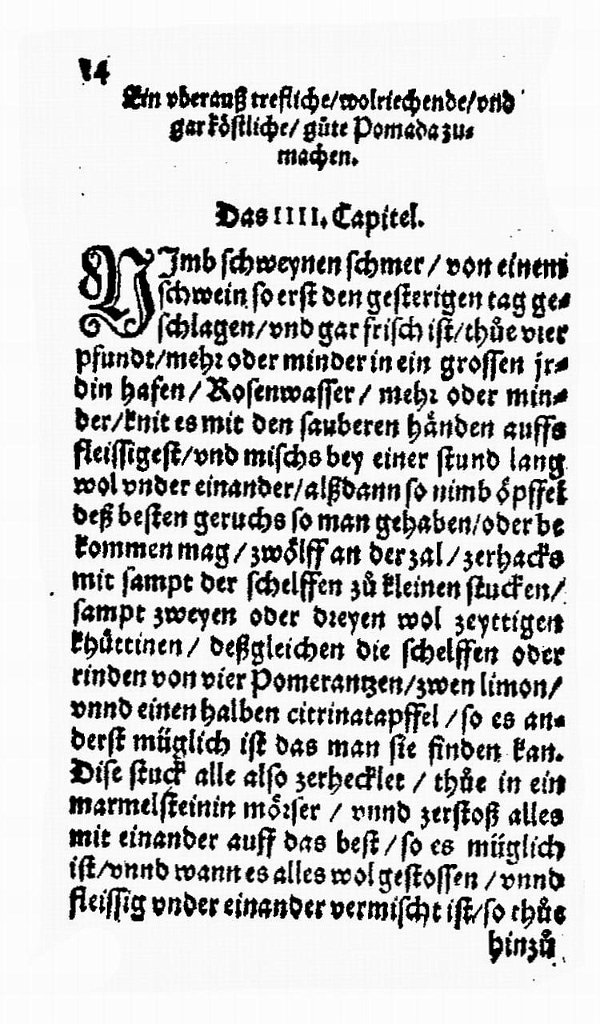 14
Ein vberauß trefliche/wolriechende/vnd
gar köstliche/ gůte Pomada zu⸗
machen.
Das IIII. Capitel.
NJmb schweynen schmer/ von einem
schwein so erst den gesterigen tag ge⸗
schlagen/vnd gar frisch ist/thůe vier
pfundt/mehr oder minder in ein grossen jr⸗
din hafen/ Rosenwasser/ mehr oder min⸗
der/knit es mit den sauberen händen auffs
fleissigest/vnd mischs bey einer stund lang
wol vnder einander/alßdann so nimb öpffel
deß besten geruchs so man gehaben/oder be
kommen mag/ zwölff an der zal/ zerhacks
mit sampt der schelffen zů kleinen stucken/
sampt zweyen oder dreyen wol zeyttigen
khüttinen/ deßgleichen die schelffen oder
rinden von vier Pomerantzen/zwen limon/
vnnd einen halben citrinatapffel/so es an⸗
derst müglich ist das man sie finden kan.
Dise stuck alle also zerhecklet/ thůe in ein
marmelsteinin mörser/ vnnd zerstoß alles
mit einander auff das best/so es müglich
ist/vnnd wann es alles wol gestossen/vnnd
fleissig vnder einander vermischt ist/so thůe
hinzů